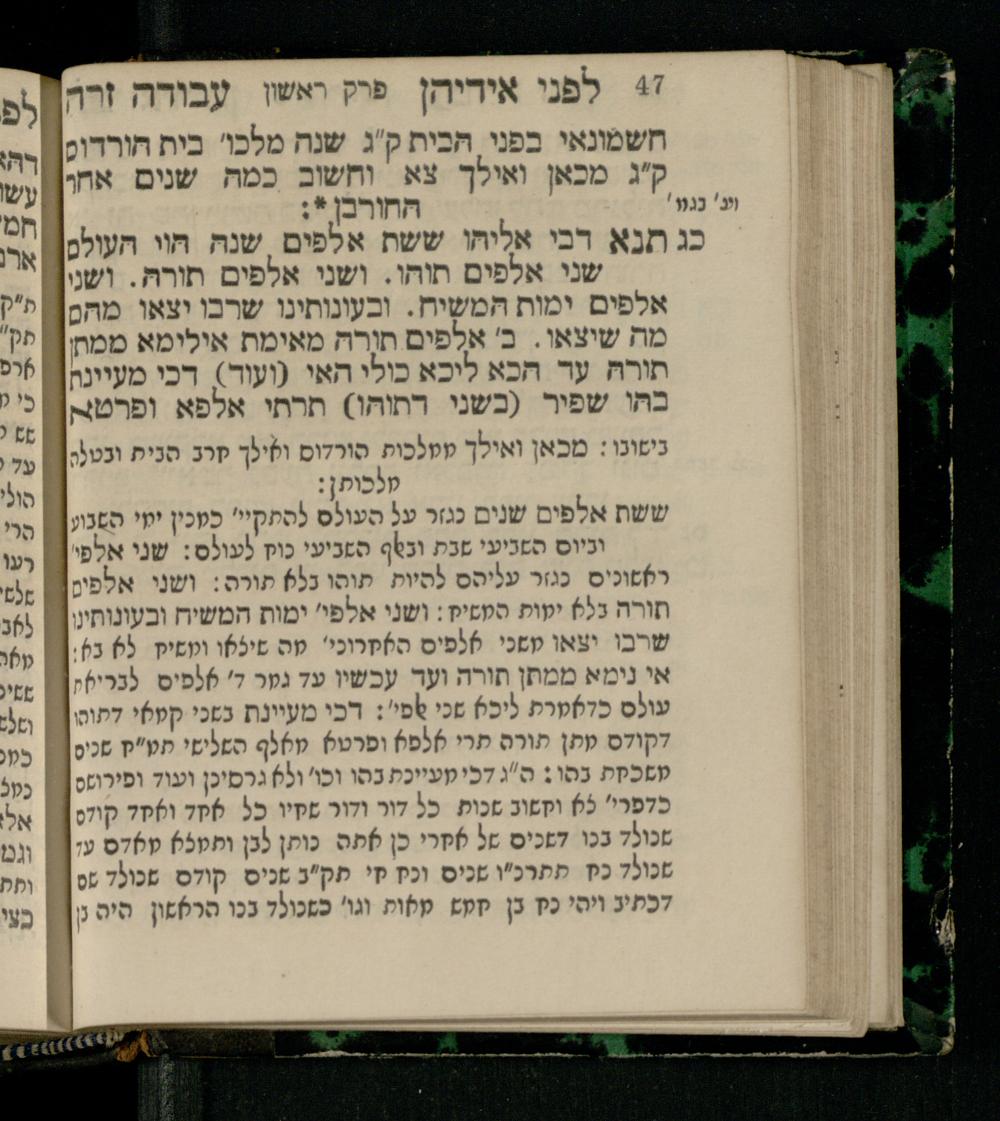 47 לפני אידיהן פרק ראשון עבודה זרה
חשמונאי בפני הבית ק"ג שנה מלכו' בית הורדוס
ק"ג מכאן ואילך צא וחשוב כמה שנים אחר
החורבן*:
ועי' בגמ'
כג תנא דבי אליהו ששת אלפים שנה הוי העולם
שני אלפים תוהו. ושני אלפים תורה. ושני
אלפים ימות המשיח. ובעונותינו שרבו יצאו מהם
מה שיצאו. ב' אלפים תורה מאימת אילימא ממתן
תורה עד הכא ליכא כולי האי (ועוד) דכי מעיינת
בהו שפיר (בשני דתוהו) תרתי אלפא ופרטא
בישובו: מכאן ואילך ממלכות הורדוס ואילך חרב הבית ובטלה
מלכותן:
ששת אלפים שנים נגזר על העולם להתקיי' כמנין ימי השבוע
וביום השביעי שבת ובאלף השביעי נוח לעולם: שני אלפי'
ראשונים נגזר עליהם להיות תוהו בלא תורה: ושני אלפים
תורה בלא ימות המשיח: ושני אלפי' ימות המשיח ובעונותינו
שרבו יצאו משני אלפים האחרוני' מה שיצאו ומשיח לא בא:
אי נימא ממתן תורה ועד עכשיו עד גמר ד' אלפים לבריאת
עולם כדאמרת ליכא שני אלפי': דכי מעיינת בשני קמאי דתוהו
דקודם מתן תורה תרי אלפא ופרטא מאלף השלישי תמ"ח שנים
משכחת בהו: ה"ג דכי מעיינת בהו וכו' ולא גרסינן ועוד ופירושם
כדפרי' צא וחשוב שנות כל דור ודור שחיו כל אחד ואחד קודם
שנולד בנו דשנים של אחרי כן אתה נותן לבן ותמצא מאדם עד
שנולד נח תתרנ"ו שנים ונח חי תק"ב שנים קודם שנולד שם
דכתיב ויהי נח בן חמש מאות וגו' כשנולד בנו הראשון היה בן